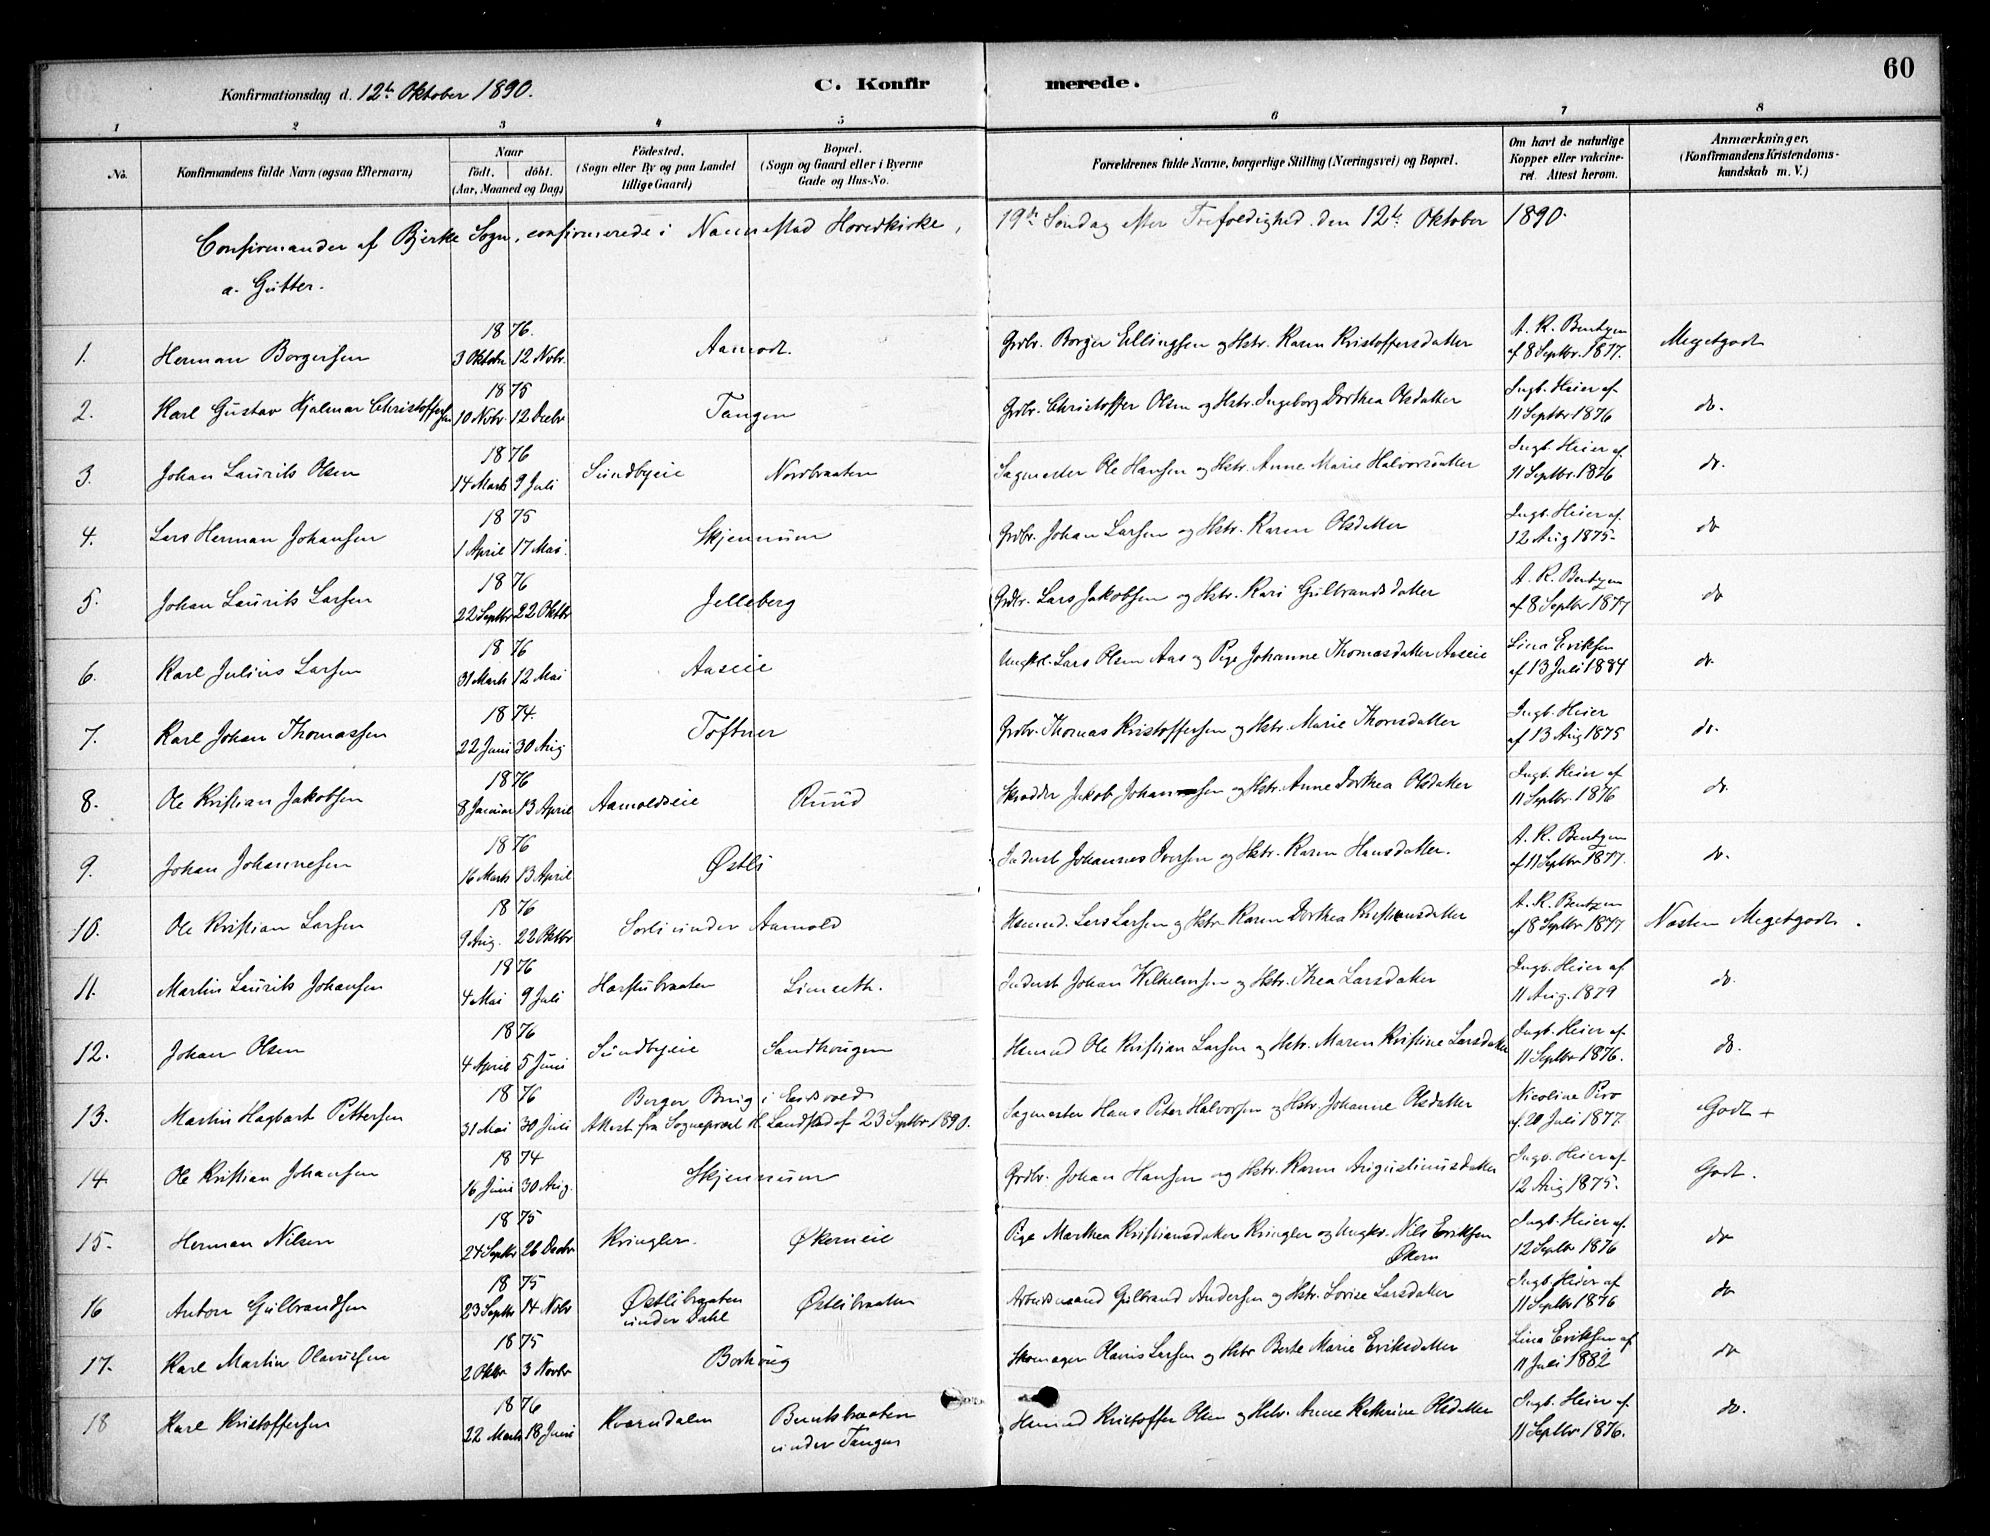 60
Konfirmationsdag d. 12te Oktober 1890.
C. Konfirmerede.
1 2 3 4 5 6 7 8
No. Konfirmandens fulde Navn (ogsaa Efternavn) Naar födt. döbt. (Aar, Maaned og Dag) Födested. (Sogn eller By og paa Landet tillige Gaard) Bopæl. (Sogn og Gaard eller i Byerne Gade og Hus-No. Forældrenes fulde Navne, borgerlige Stilling (Næringsvei) og Bopæl. Om havt de naturlige Kopper eller vakcineret. Attest herom. Anmærkninger. (Konfirmandens Kristendomskundskab m. V.)
Confirmander af Bjerke Sogn, confirmerede i Nannestad Hovedkirke, 19de Søndag efter Trefoldighed. den 12te Oktober 1890.
a. Gutter.
1. Herman Borgersen 1876. 3 Oktobr 12 Novbr. Aamodt. Grdbr. Borger Ellingsen og Hstr. Karen Kristoffersdatter A. K. Bentzen af 8 Septbr. 1877. Megetgodt
2. Karl Gustav Hjalmar Christoffersen 1875 10 Novbr. 12 Decbr. Tangen Grdbr. Christoffer Olsen og Hstr. Ingeborg Dorthea Olsdatter Ingb. Heier af 11 Septbr 1876 do.
3. Johan Laurits Olsen 1876 14 Marts 9 Juli Sundbyeie Nordbraaten Sagmester Ole Hansen og Hstr. Anne Marie Halvorsdatter Ingb. Heier af 11 Septbr. 1876 do.
4. Lars Herman Johansen 1875 1 April 17 Mai. Skjennum Grdbr. Johan Larsen og Hstr. Karen Olsdatter Ingb. Heier af. 12 Aug 1875. do
5. Johan Laurits Larsen 1876 22 Septbr 22 Oktbr Jelleberg Grdbr. Lars Jakobsen og Hstr. Kari Gulbrandsdatter A. K. Bentzen af 8 Septbr 1877 do
6. Karl Julius Larsen 1876 31 Marts 12 Mai Aaseie Ungkrl. Lars Olsen Aas og Pige Johanne Thomasdatter Aaseie Lina Eriksen af 13 Juli 1884 do.
7. Karl Johan Thomassen 1874. 22 Juni 30 Aug Toftner Grdbr. Thomas Kristoffersen og Hstr. Marie Thorsdatter Ingb. Heier af 13 Aug 1875 do.
8. Ole Kristian Jakobsen 1876 8 Januar 13 April Aamoldseie Ruud Skrædder Jakob Johannesen og Hstr. Anne Dorthea Olsdatter Ingb. Heier af 11 Septbr. 1876 do.
9. Johan Johannesen 1876 16 Marts 13 April Østli Inderst Johannes Iversen og Hstr. Karen Hansdatter. A. K. Bentzen af 11 Septbr 1877. do.
10. Ole Kristian Larsen 1876 9 Aug. 22 Oktbr Sorli under Aamold Husmd. Lars Larsen og Hstr Karen Dorthea Kristiansdatter A. K. Bentzen af 8 Septbr 1877 Næsten Megetgodt.
11. Martin Laurits Johansen 1876 4 Mai 9 Juli Limseth. Inderst Johan Wilhelmsen og Hstr. Thea Larsdatter Ingb. Heier af 11 Aug. 1879 do.
12. Johan Olsen 1876 4 April 5 Juni Sundbyeie Sandhougen Husmd Ole Kristian Larsen og Hstr. Maren Kristine Larsdatter Ingb. Heier af. 11 Septbr 1876. do.
13. Martin Hagbart Pettersen 1876 31 Mai 30 Juli Berger Brug i Eidsvold Attest fra Sogneprest H. Landstad af 23 Septbr 1890. Sagmester Hans Peter Halvorsen og Hstr Johanne Olsdatter Nicoline Piro af. 20 Juli 1877. Godt +
14. Ole Kristian Johansen 1874 16 Juni 30 Aug. Skjennum Grdbr. Johan Hansen og Hstr. Karen Augustinusdatter Ingb. Heier af. 12 Aug 1875. Godt.
15. Herman Nilsen 1875 24 Septbr 26 Decbr Kringler. Økerneie Pige Marthea Kristiansdatter Kringler og Ungkr. Nils Eriksen Økern Ingb. Heier af. 12 Septbr 1876 do
16 Anton Gulbrandsen 1875 23 Septbr 14 Novbr Østlibraaten under Dahl Østlibraaten Arbeidsmand Gulbrand Andersen og Hstr. Lovise Larsdatter Ingb. Heier af 11 Septbr 1876 do
17. Karl Martin Olaussen 1875 2 Oktbr 3 Novbr Borhoug Skomager Olaus Larsen og Hstr Berte Marie Eriksdatter Lina Eriksen af 11 Juli 1882 do
18 Karl Kristoffersen 1876 22 Marts 18 Juni Kværndalen under Tangen Husmd Kristoffer Olsen og Hstr. Anne Kathrine Olsdatter Ingb. Heier af 11 Septbr 1876. do.